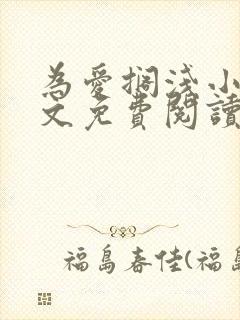 為愛擱淺小
文免費閱讀
福島春佳(福島